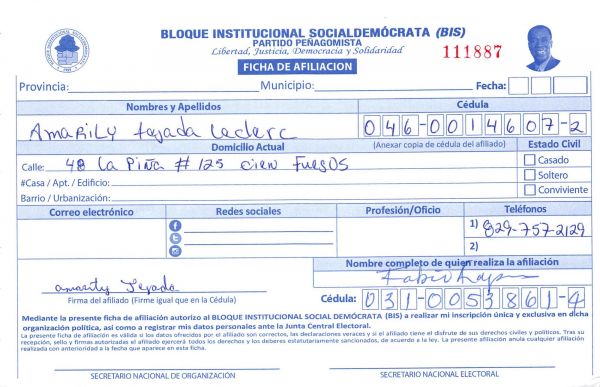 BLOQUE INSTITUCIONAL SOCIALDEMÓCRATA (BIS)
PARTIDO PEÑAGOMISTA
Libertad, Justicia, Democracia y Solidaridad
111887
FICHA DE AFILIACION
Provincia: Municipio: Fecha:
Nombres y Apellidos Cédula
AmARILy tejada Leclerc 046-0014607-2
Domicilio Actual (Anexar copia de cédula del afiliado) Estado Civil
Calle: 48 La Piña # 125 cien FuegOS Casado
#Casa / Apt. / Edificio: Soltero
Barrio / Urbanización: Conviviente
Correo electrónico Redes sociales Profesión/Oficio Teléfonos
1) 829-757-2129
2)
Nombre completo de quien realiza la afiliación
amarily Tejada Fabio
Firma del afiliado (Firme igual que en la Cédula) Cédula: 031-0053861-4
Mediante la presente ficha de afiliación autorizo al BLOQUE INSTITUCIONAL SOCIAL DEMÓCRATA (BIS) a realizar mi inscripción única y exclusiva en dicha
organización política, así como a registrar mis datos personales ante la Junta Central Electoral.
La presente ficha de afiliación es válida si los datos ofrecidos por el afiliado son correctos, las declaraciones veraces y si el afiliado tiene el disfrute de sus derechos civiles y políticos. Tras su
recepción, sello y firmas autorizadas el afiliado ejercerá todos los derechos y los deberes estatutariamente sancionados, de acuerdo a la ley. La presente afiliación anula cualquier afiliación
realizada con anterioridad a la fecha que aparece en esta ficha.
SECRETARIO NACIONAL DE ORGANIZACIÓN SECRETARIO NACIONAL ELECTORAL